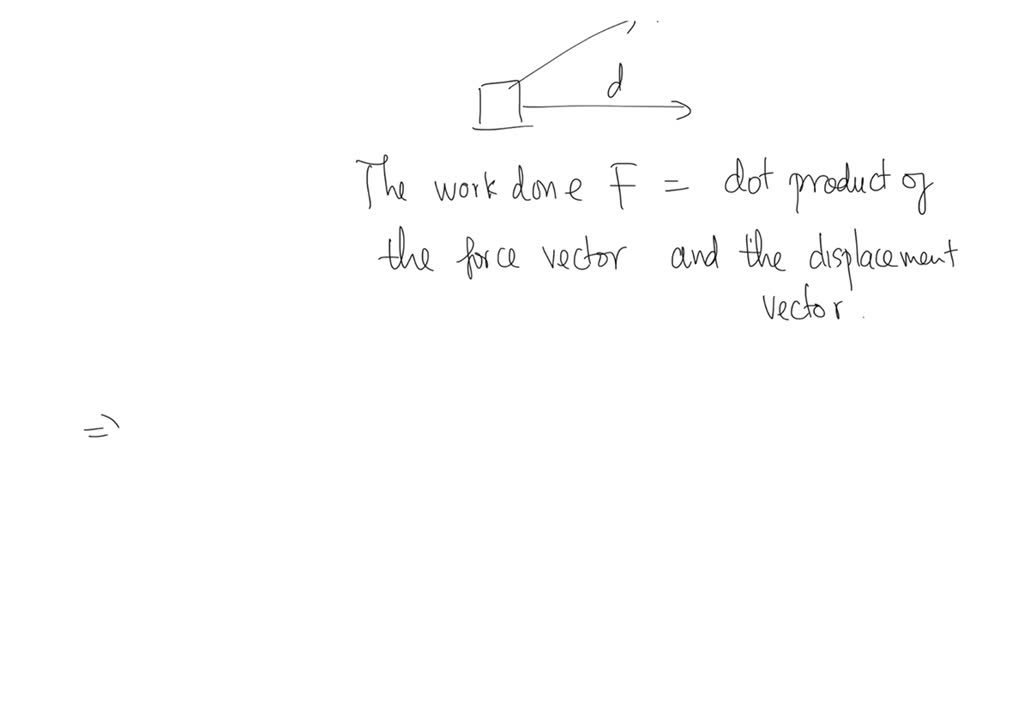 d
The work done F = dot product of
the force vector and the displacement
vector.
⇒